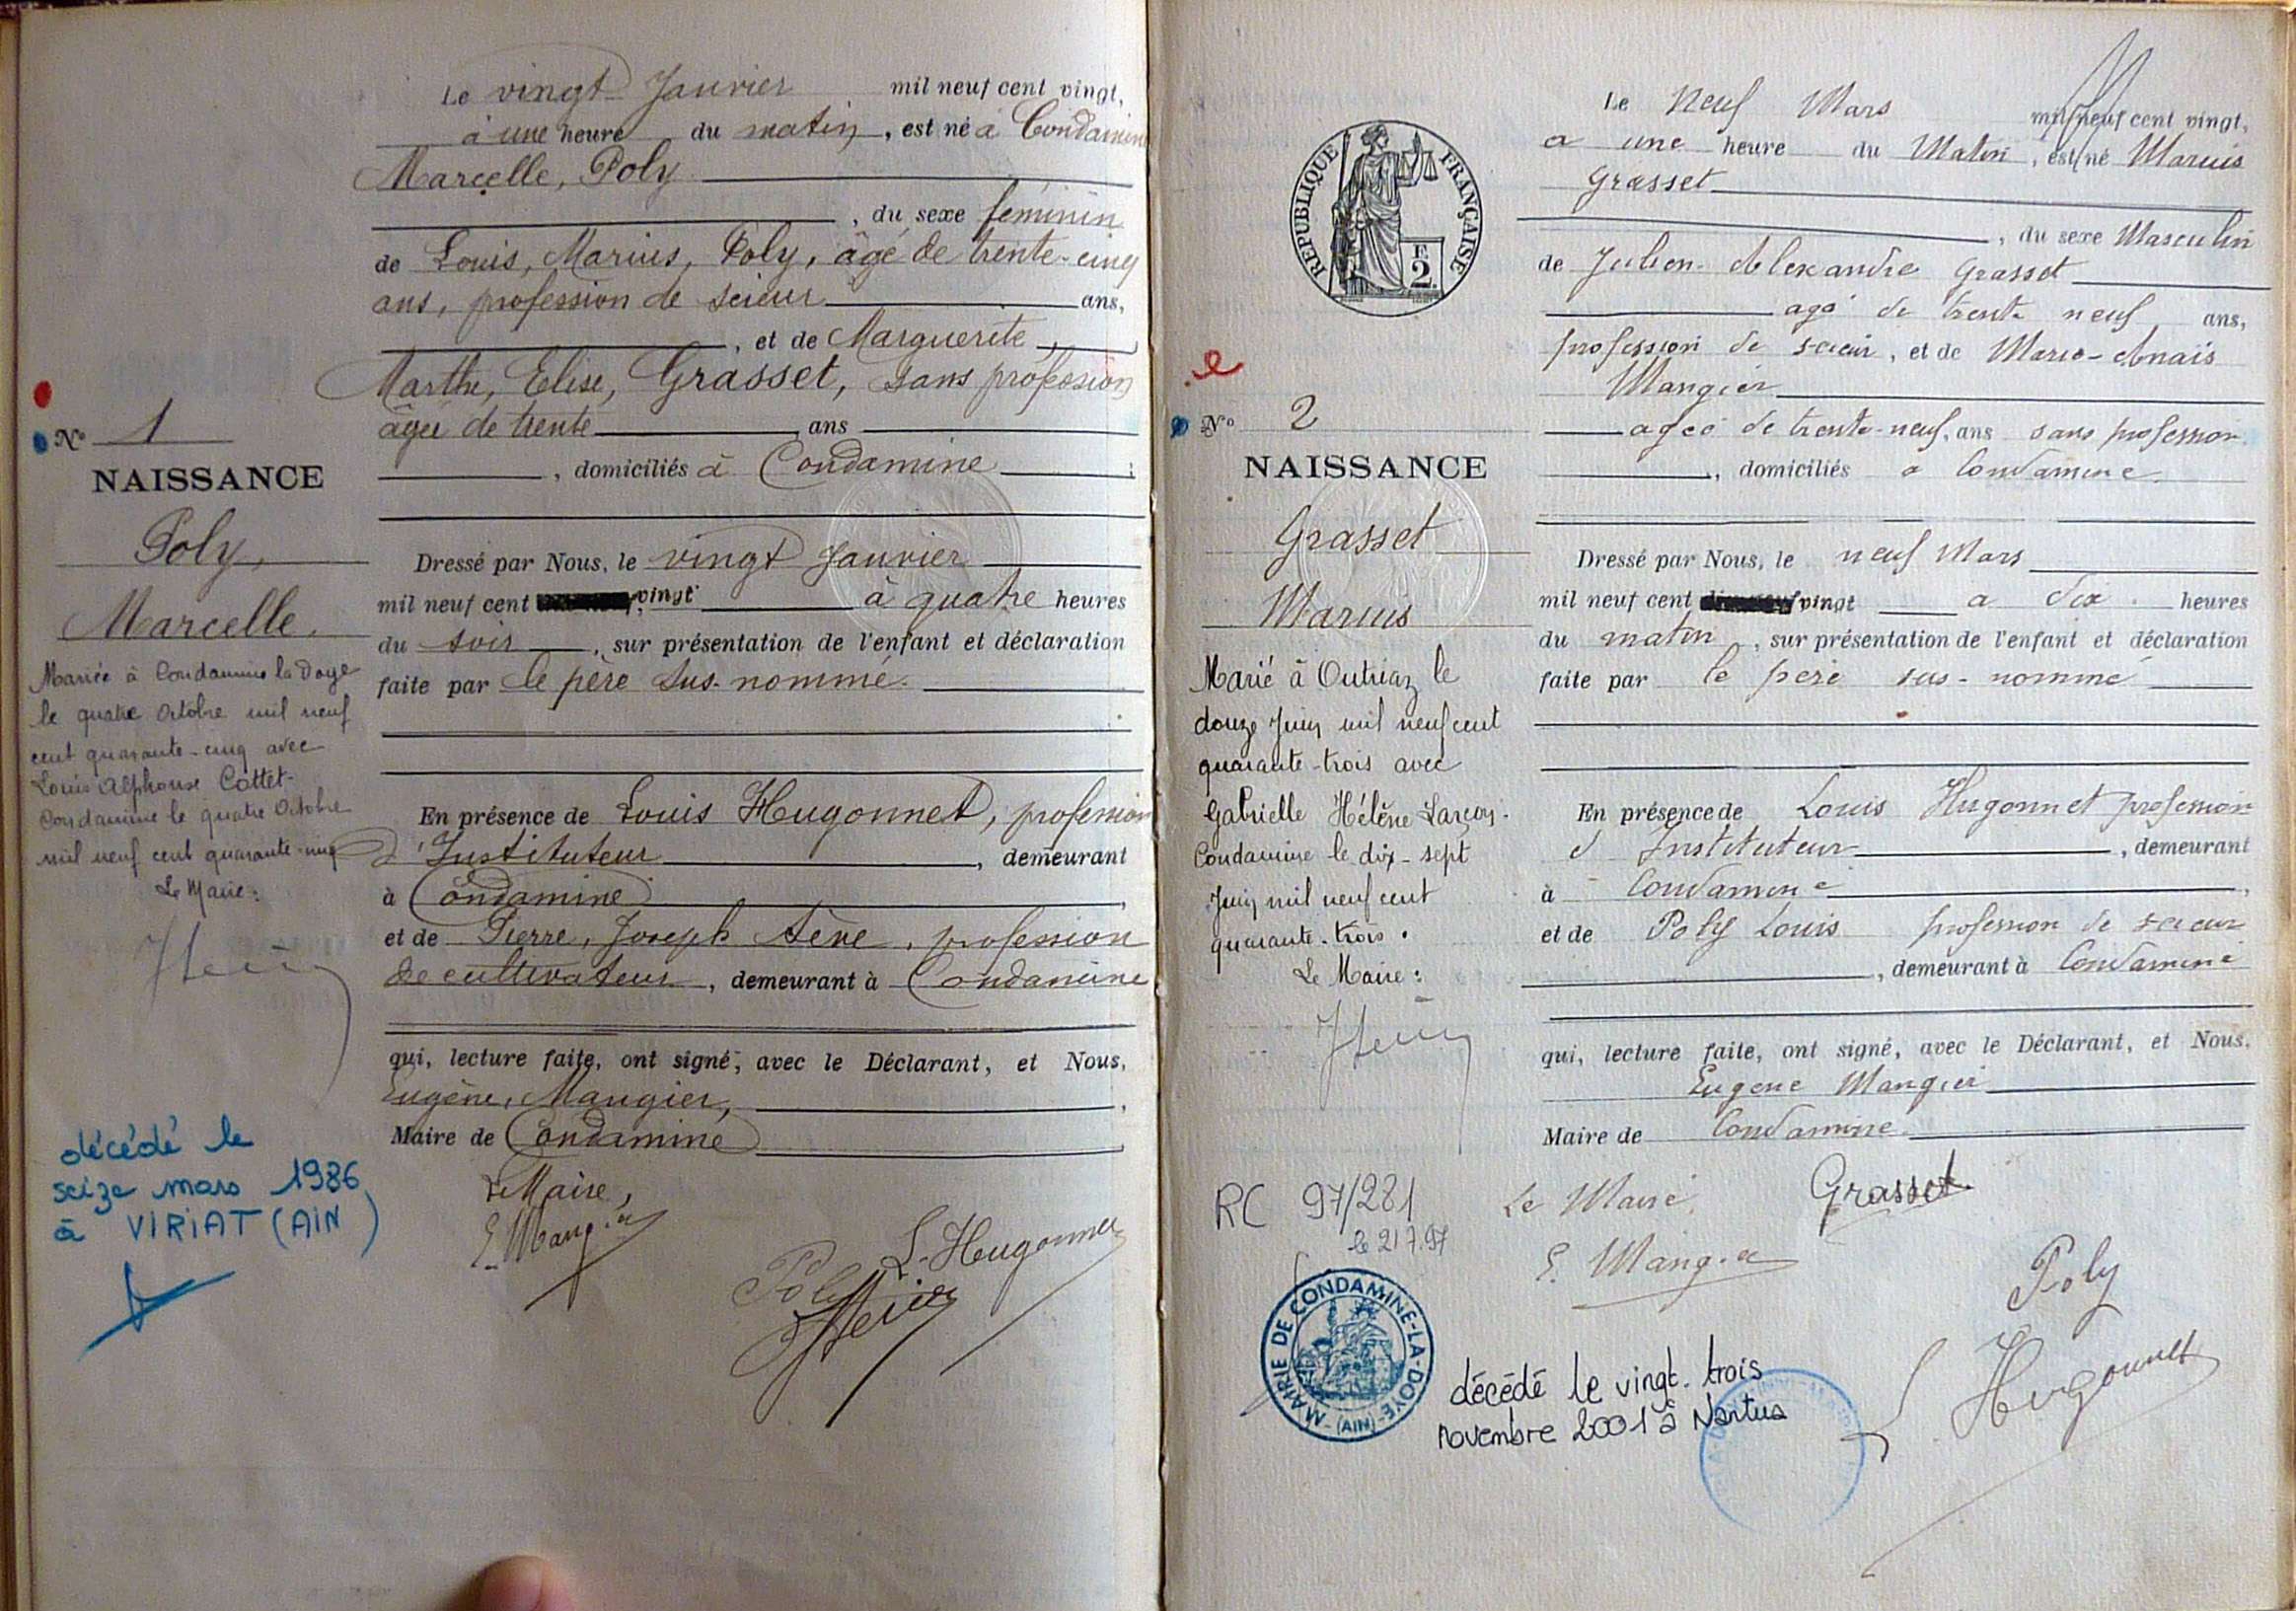 Le vingt Janvier mil neuf cent vingt,
à une heure du matin, est né à Condamine
Marcelle, Poly
, du sexe féminin
de Louis, Marius, Poly, âgé de trente-cinq
ans, profession de scieur ans,
, et de Marguerite,
Marthe, Elise, Grasset, sans profession
âgée de trente ans
, domiciliés à Condamine ;
Dressé par Nous, le vingt Janvier
mil neuf cent vingt à quatre heures
du soir, sur présentation de l'enfant et déclaration
faite par le père sus-nommé.
En présence de Louis Hugonnet, profession
d'Instituteur, demeurant
à Condamine,
et de Pierre, Joseph Sève, profession
de cultivateur, demeurant à Condamine
qui, lecture faite, ont signé, avec le Déclarant, et Nous,
Eugène, Mangier,
Maire de Condamine
Le Maire,
E. Mangier
L. Hugonnet
Poly
N° 1
NAISSANCE
Poly,
Marcelle.
Mariée à Condamine la Doye
le quatre Octobre mil neuf
cent quarante-cinq avec
Louis Alphonse Cottet-
Condamine le quatre Octobre
mil neuf cent quarante-cinq
Le Maire :
décédé le
seize mars 1986
à VIRIAT (AIN)
Le Neuf Mars mil neuf cent vingt,
a une heure du Matin, est né Marius
Grasset
, du sexe Masculin
de Julien-Alexandre Grasset
agé de trente neuf ans,
profession de scieur, et de Marie-Anaïs
Mangier
agée de trente-neuf, ans sans profession
, domiciliés a Condamine.
Dressé par Nous, le neuf Mars
mil neuf cent vingt a dix heures
du matin, sur présentation de l'enfant et déclaration
faite par le père sus-nommé
En présence de Louis Hugonnet profession
d Instituteur, demeurant
à Condamine,
et de Poly Louis profession de scieur
, demeurant à Condamine
qui, lecture faite, ont signé, avec le Déclarant, et Nous,
Eugene Mangier
Maire de Condamine.
Le Maire, Grasset
E. Mangier
Poly
L. Hugonnet
REPUBLIQUE FRANÇAISE
E
2
N° 2
NAISSANCE
Grasset
Marius
Marié à Outriaz le
douze Juin mil neuf cent
quarante-trois avec
Gabrielle Hélène Larçon.
Condamine le dix-sept
Juin mil neuf cent
quarante-trois.
Le Maire :
RC 97/281
le 21.7.97
MAIRIE DE CONDAMINE-LA-DOYE - (AIN) -
décédé le vingt-trois
novembre 2001 à Nantua